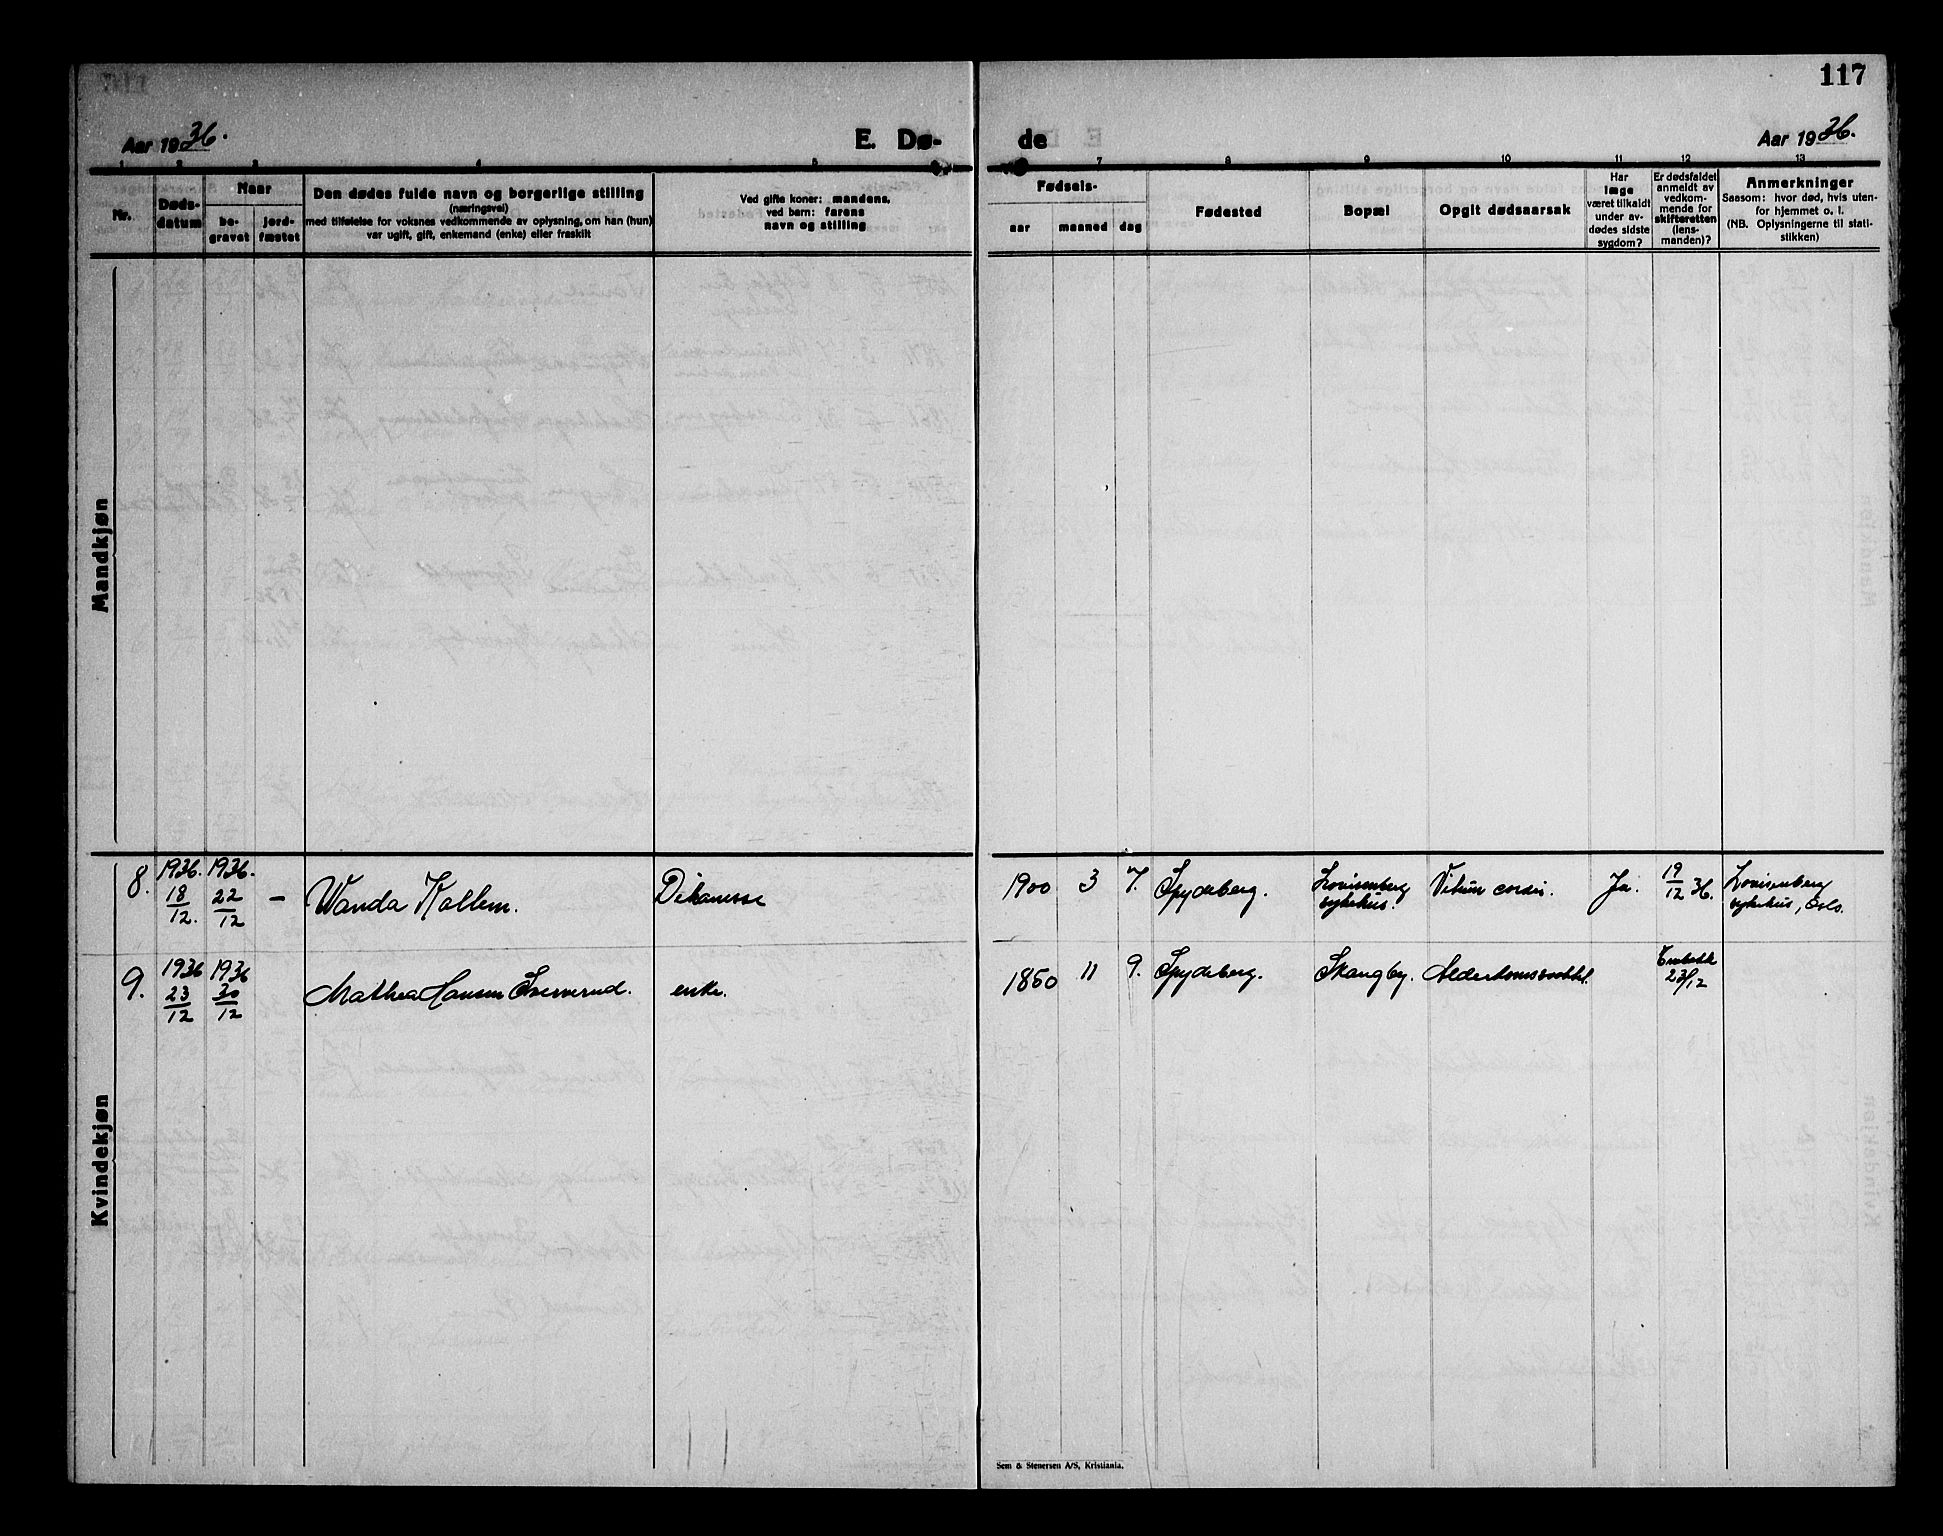 117
Aar 1936.
E. Dø-
de
Aar 1936.
1 2 3 4 5
7 8 9 10 11 12 13
Nr.
Døds-
datum
Naar
be-
gravet
jord-
fæstet
Den dødes fulde navn og borgerlige stilling
(næringsvei)
med tilføielse for voksnes vedkommende av oplysning, om han (hun)
var ugift, gift, enkemand (enke) eller fraskilt
Ved gifte koner: mandens,
ved barn: farens
navn og stilling
Fødsels-
aar maaned dag
Fødested
Bopæl
Opgit dødsaarsak
Har
læge
været tilkaldt
under av-
dødes sidste
sygdom?
Er dødsfaldet
anmeldt av
vedkom-
mende for
skifteretten
(lens-
manden)?
Anmerkninger
Saasom: hvor død, hvis uten-
for hjemmet o. l.
(NB. Oplysningerne til stati-
stikken)
Mandkjøn
Kvindekjøn
8. 1936. 18/12. 1936. 22/12 – Wanda Kallem. Dikonesse 1900 3 7. Spydeberg. Lovisenberg sykehus. Vitium cordis. Ja. 19/12 36. Lovisenberg sykehus, Oslo.
9. 1936 23/12 1936 30/12 Mathea Hansen enke. 1850 11 9. Spydeberg. Skangby. 23/12
Sem & Stenersen A/S, Kristiania.